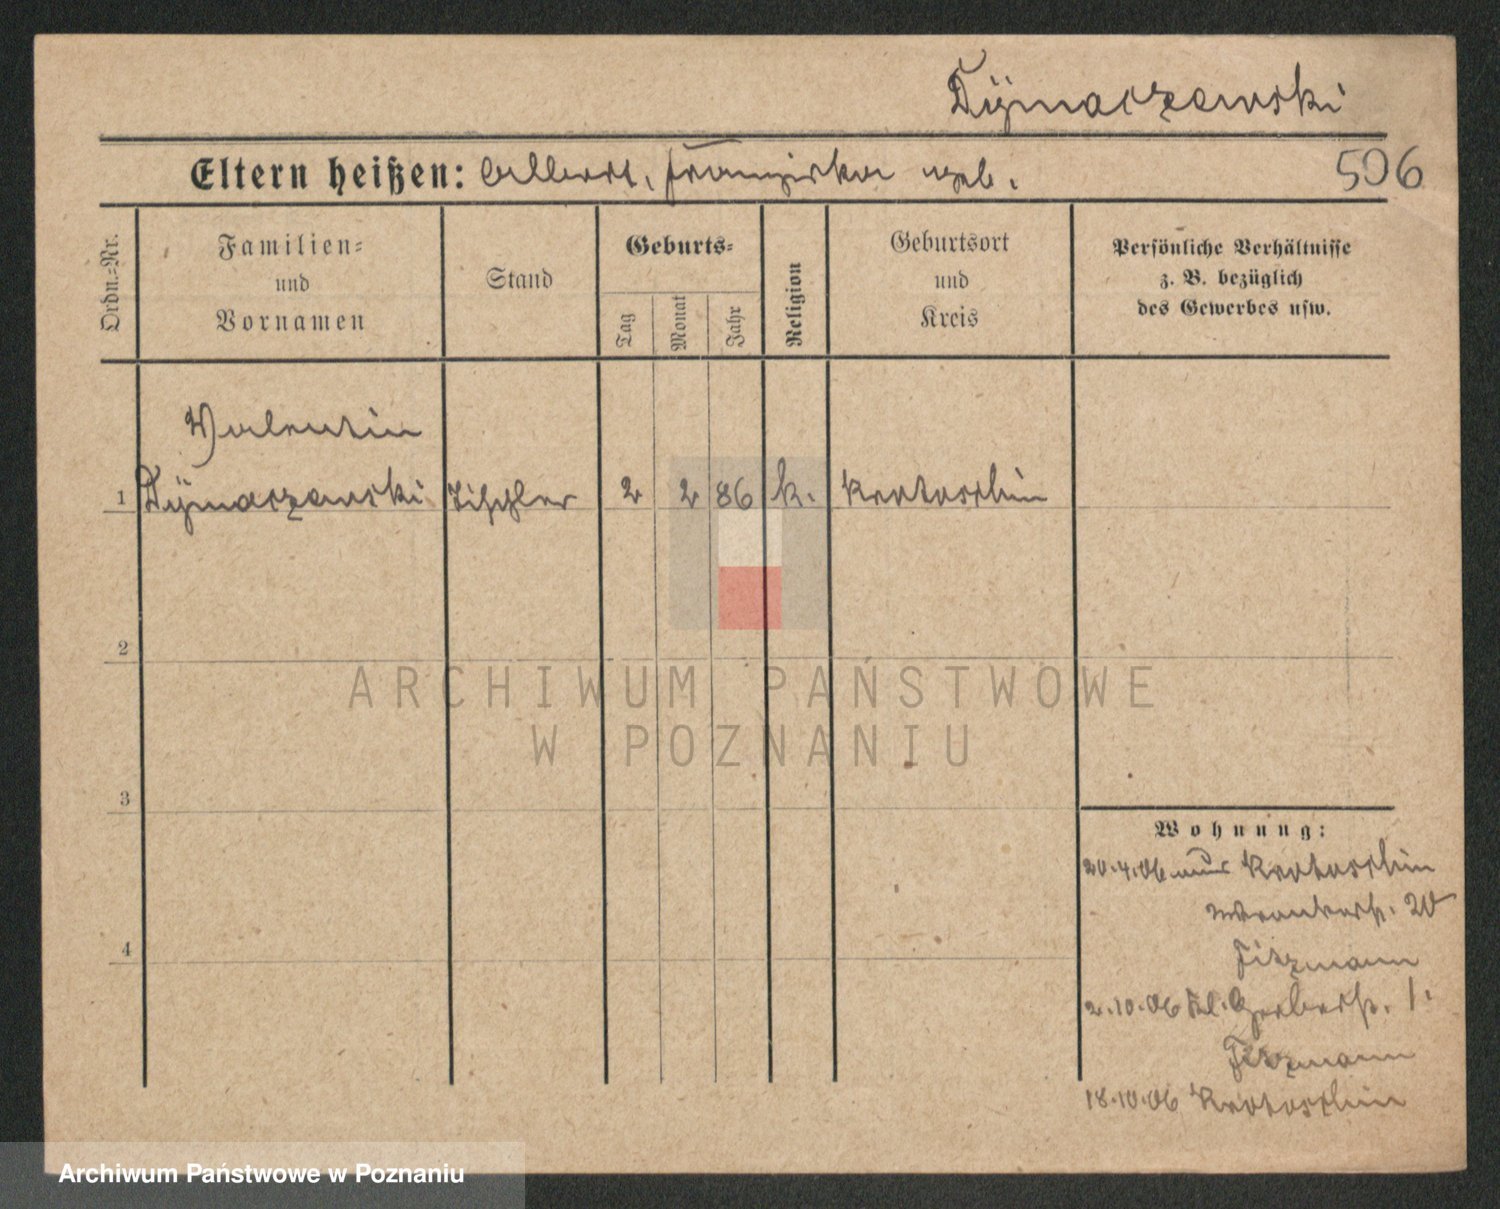 Dÿmaczewski
Eltern heißen: Albert, Franziska geb.
506
Ordn.=Nr.
Familien=
und
Vornamen
Stand
Geburts=
Tag
Monat
Jahr
Religion
Geburtsort
und
Kreis
Persönliche Verhältnisse
z. B. bezüglich
des Gewerbes usw.
Valentin
1 Dÿmaczewski Tischler 2 2 86 k. Krotoschin
2
ARCHIWUM PAŃSTWOWE
W POZNANIU
3
Wohnung:
20.4.06 aus Krotoschin
20
4
2.10.06 Kl. Gerberstr. 1.
18.10.06 Krotoschin
Archiwum Państwowe w Poznaniu